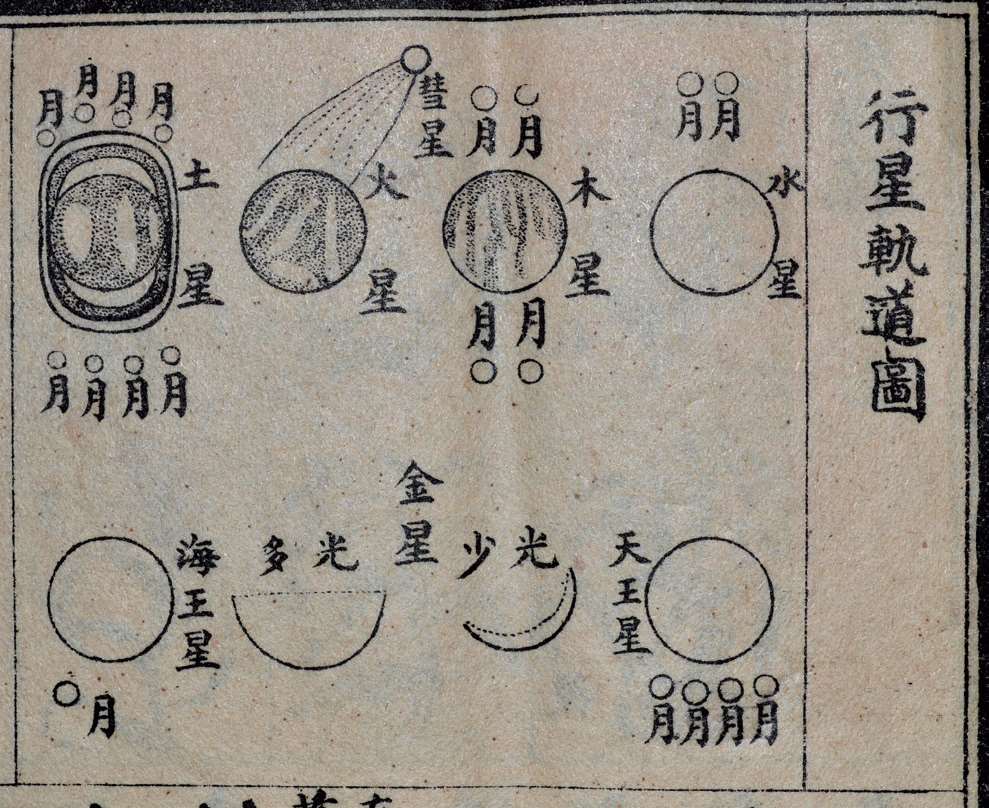 行星軌道圖
水星
月
月
木星
月
月
月
月
彗星
火星
土星
月
月
月
月
月
月
月
月
天王星
月
月
月
月
金星
光少
光多
海王星
月